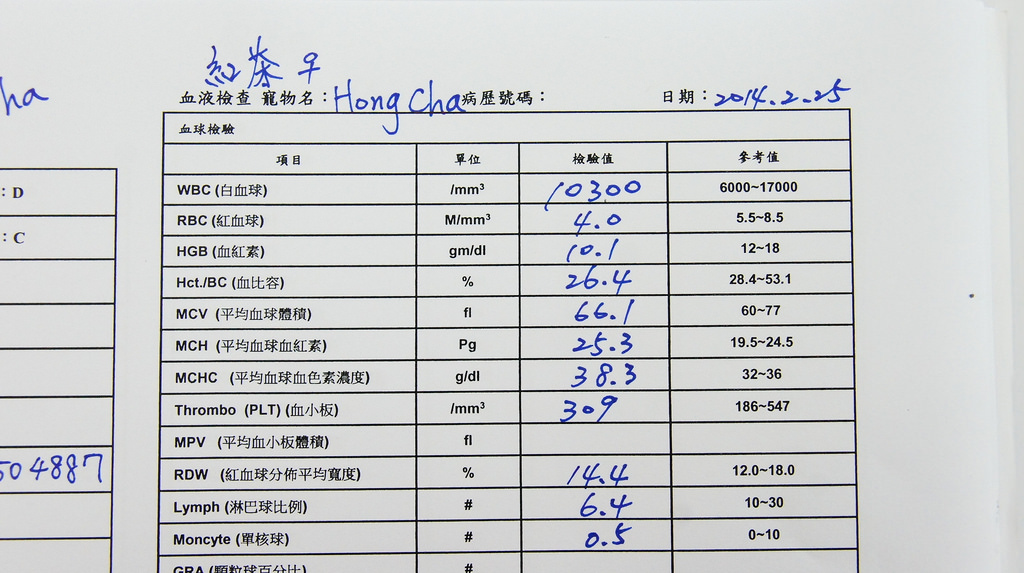 紅茶 ♀
血液檢查 寵物名：Hong Cha 病歷號碼： 日期：2014.2.25
血球檢驗
項目 單位 檢驗值 參考值
WBC (白血球) /mm³ 10300 6000~17000
RBC (紅血球) M/mm³ 4.0 5.5~8.5
HGB (血紅素) gm/dl 10.1 12~18
Hct./BC (血比容) % 26.4 28.4~53.1
MCV (平均血球體積) fl 66.1 60~77
MCH (平均血球血紅素) Pg 25.3 19.5~24.5
MCHC (平均血球血色素濃度) g/dl 38.3 32~36
Thrombo (PLT) (血小板) /mm³ 309 186~547
MPV (平均血小板體積) fl
RDW (紅血球分佈平均寬度) % 14.4 12.0~18.0
Lymph (淋巴球比例) # 6.4 10~30
Moncyte (單核球) # 0.5 0~10
GRA (顆粒球百分比) #
ha
: D
: C
504887